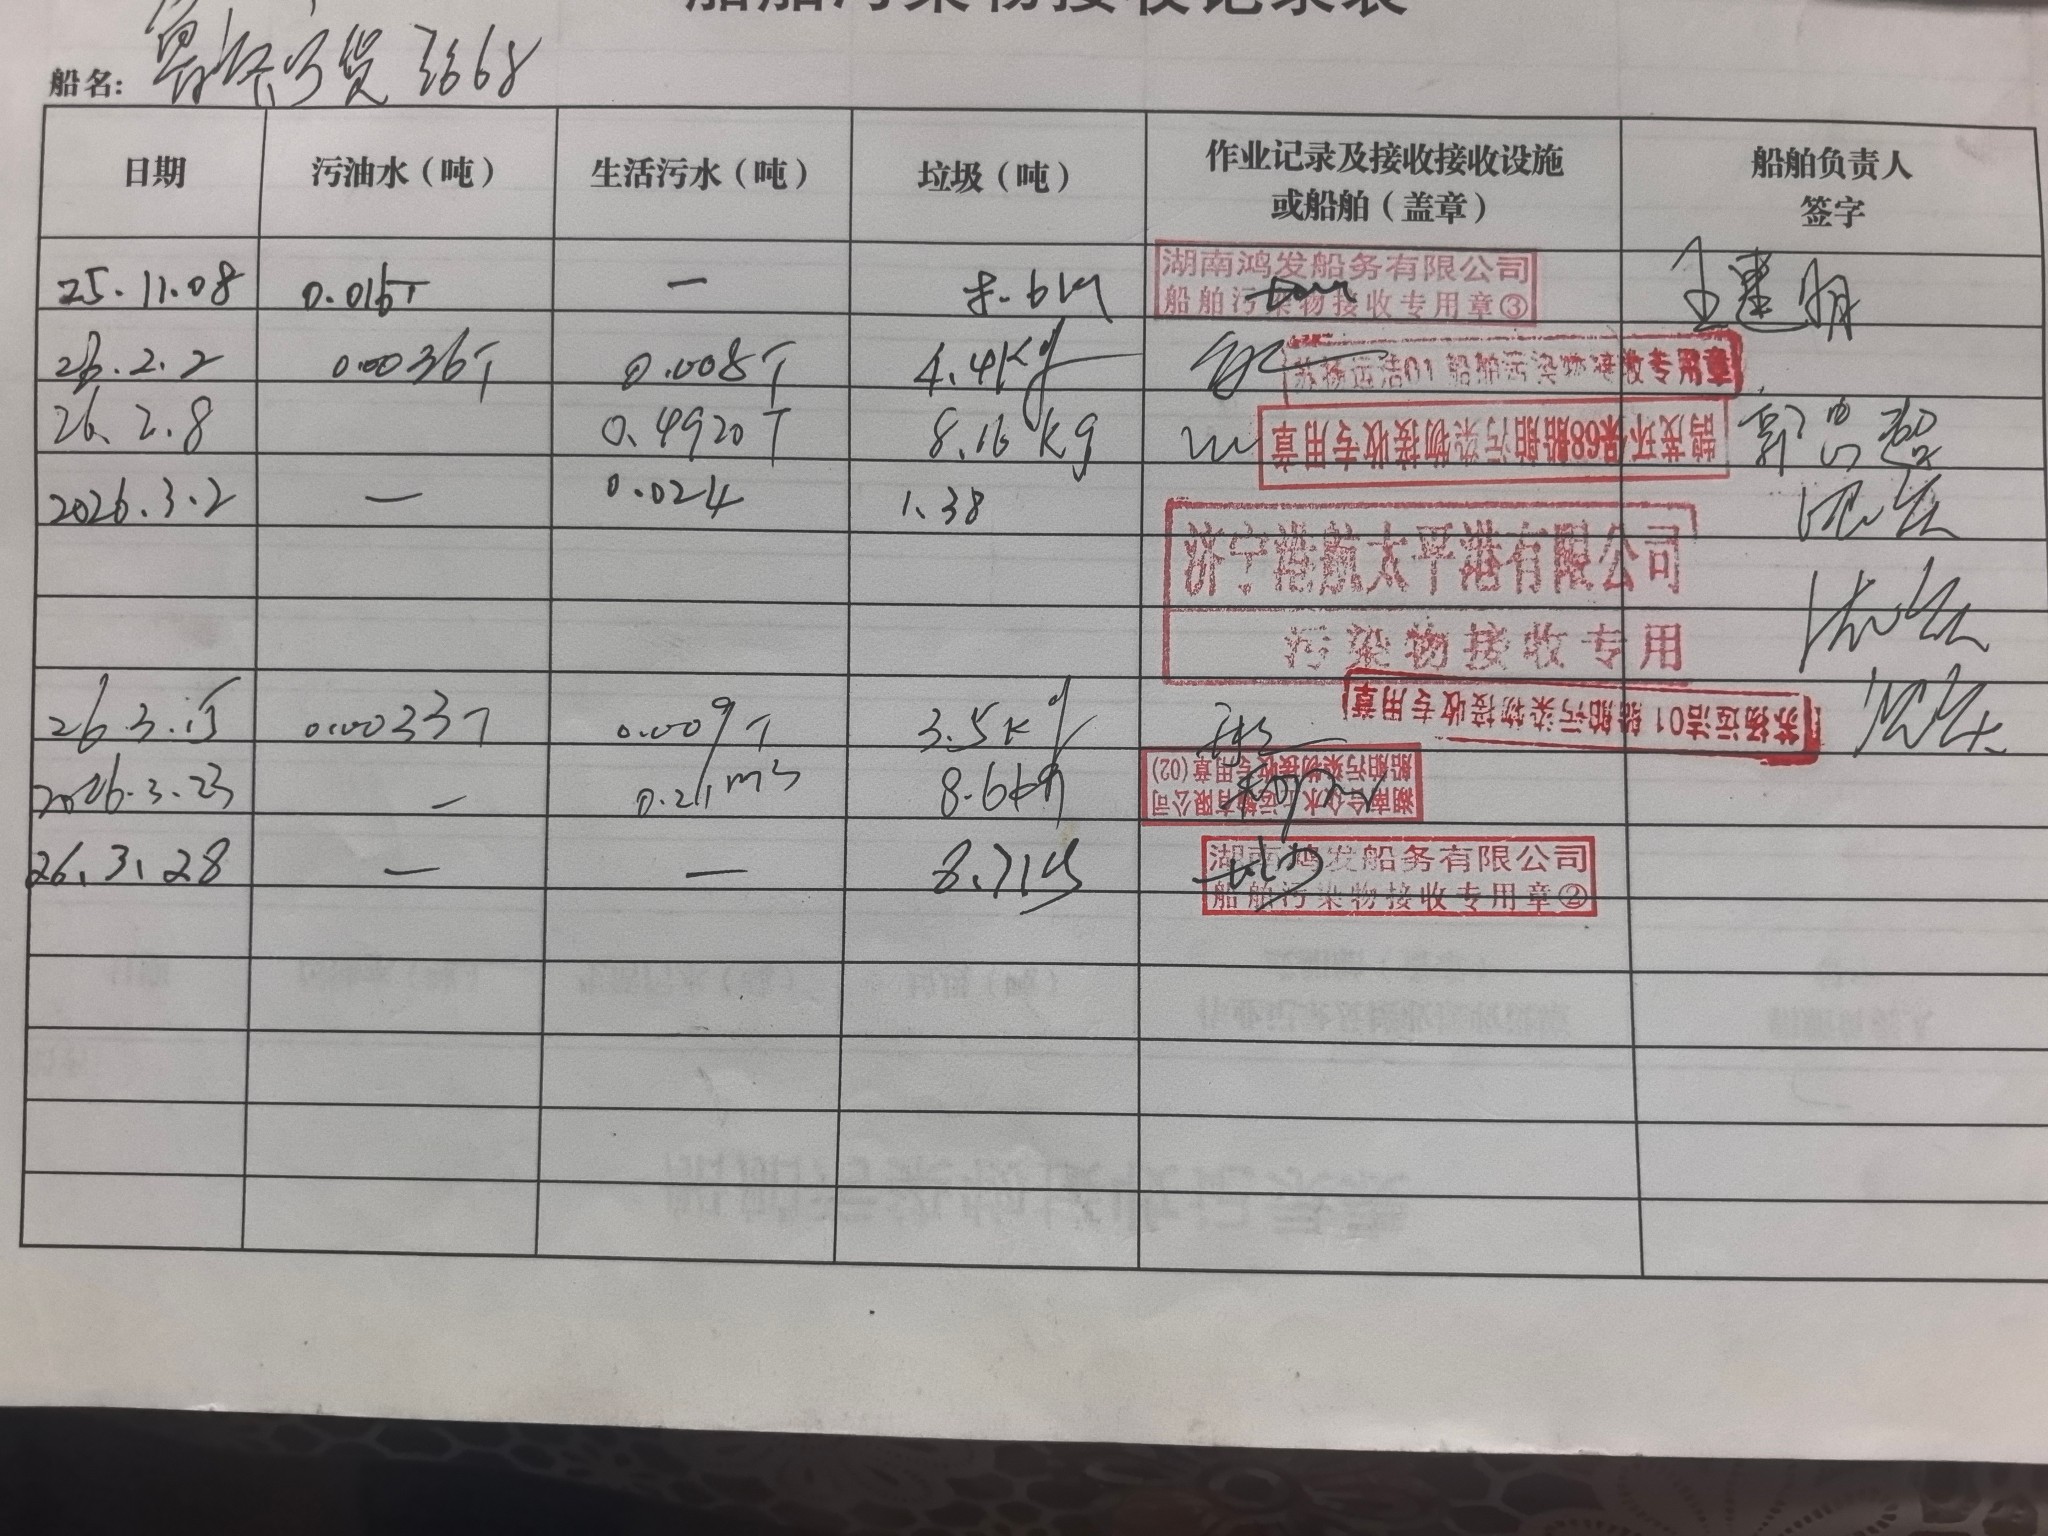 船舶污染物接收记录表
船名: 货 3668
日期 污油水（吨） 生活污水（吨） 垃圾（吨） 作业记录及接收接收设施 或船舶（盖章） 船舶负责人 签字
25.11.08 0.016T — 湖南鸿发船务有限公司 船舶污染物接收专用章③ 王建明
26.2.2 0.0036T 0.008T 4.4Kg 苏扬运洁01 船舶污染物接收专用章
26.2.8 0.4920T 8.16kg 环保68船舶污染物接收专用章
2026.3.2 — 0.024 1.38 济宁港航太平港有限公司
污染物接收专用
26.3.15 0.0033T 0.009T 3.5Kg 苏扬运洁01 船舶污染物接收专用章
2026.3.23 — 0.21m3 8.6kg 船舶污染物接收专用章(02)
26.3.28 — — 湖南鸿发船务有限公司 船舶污染物接收专用章②